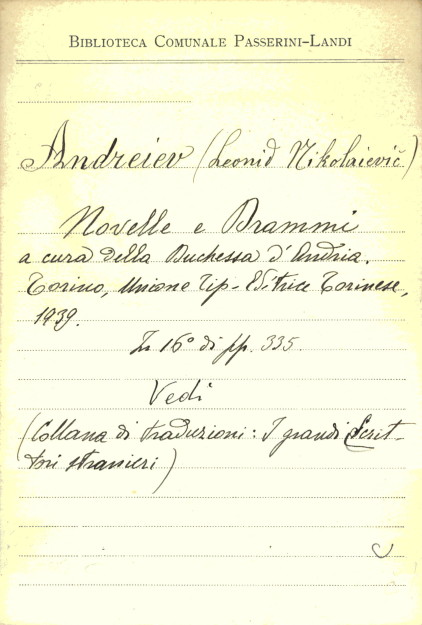 BIBLIOTECA COMUNALE PASSERINI-LANDI
Andreiev (Leonid Nikolaievič)
Novelle e Drammi
a cura della Duchessa d'Andria.
Torino, Unione Tip-Editrice Torinese,
1939.
In 16° di pp. 335.
Vedi
(Collana di traduzioni: I grandi Scrit-
tori stranieri)